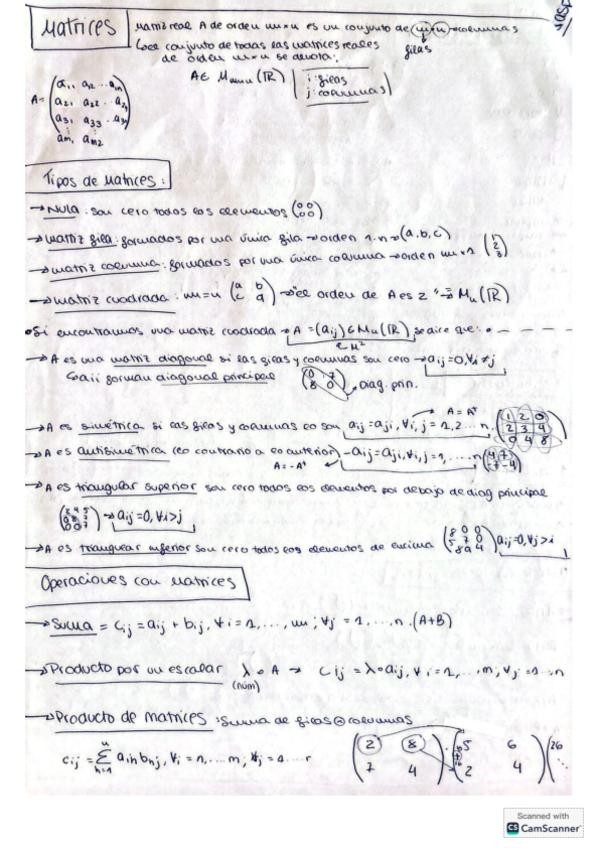 Matrices
Matriz real A de orden m×n es un conjunto de m·n → columnas
filas
↳ el conjunto de todas las matrices reales
de orden m×n se denota:
A ∈ Mm×n (ℝ)
i: filas
j: columnas
A= (a11 a12 ... a1n
a21 a22 ... a2n
a31 a33 ... a3n
am1 am2)
Tipos de Matrices:
→ Nula: son cero todos los elementos (0 0
0 0)
→ matriz fila: formados por una única fila → orden 1·n → (a, b, c)
→ matriz columna: formados por una única columna → orden m×1 (1
2
3)
→ matriz cuadrada: m=n (a b
c d) → el orden de A es 2 → Mn (ℝ)
• Si encontramos una matriz cuadrada → A = (aij) ∈ Mn(ℝ), se dice que:
→ A es una matriz diagonal si las filas y columnas son cero → aij = 0, ∀i ≠ j
↳ aii forman diagonal principal
(0 7
8 0) Diag. prin.
→ A es simétrica si las filas y columnas lo son aij = aji, ∀i, j = 1, 2... n. (1 2 0
2 3 4
0 4 8)
A = At
→ A es antisimétrica (lo contrario a lo anterior) -aij = aji, ∀i, j = 1, ... n (4 7
-7 -4)
A = -At
→ A es triangular superior son cero todos los elementos por debajo de diag principal
→ aij = 0, ∀i > j
→ A es triangular inferior son cero todos los elementos de encima (8 0 0
5 7 0
8 9 4) aij = 0, ∀j > i
Operaciones con Matrices
→ Suma = cij = aij + bij, ∀i = 1, ..., m; ∀j = 1, ..., n. (A+B)
→ Producto por un escalar λ · A → cij = λ · aij, ∀i = 1, ... m; ∀j = 1 ... n
(núm)
→ Producto de matrices: suma de filas ⊙ columnas
cij = Σ aih bhj, ∀i = 1, ... m; ∀j = 1 ... r
n
h=1
(2 8
7 4) · (5 6
2 4) (26
Scanned with
CS CamScanner